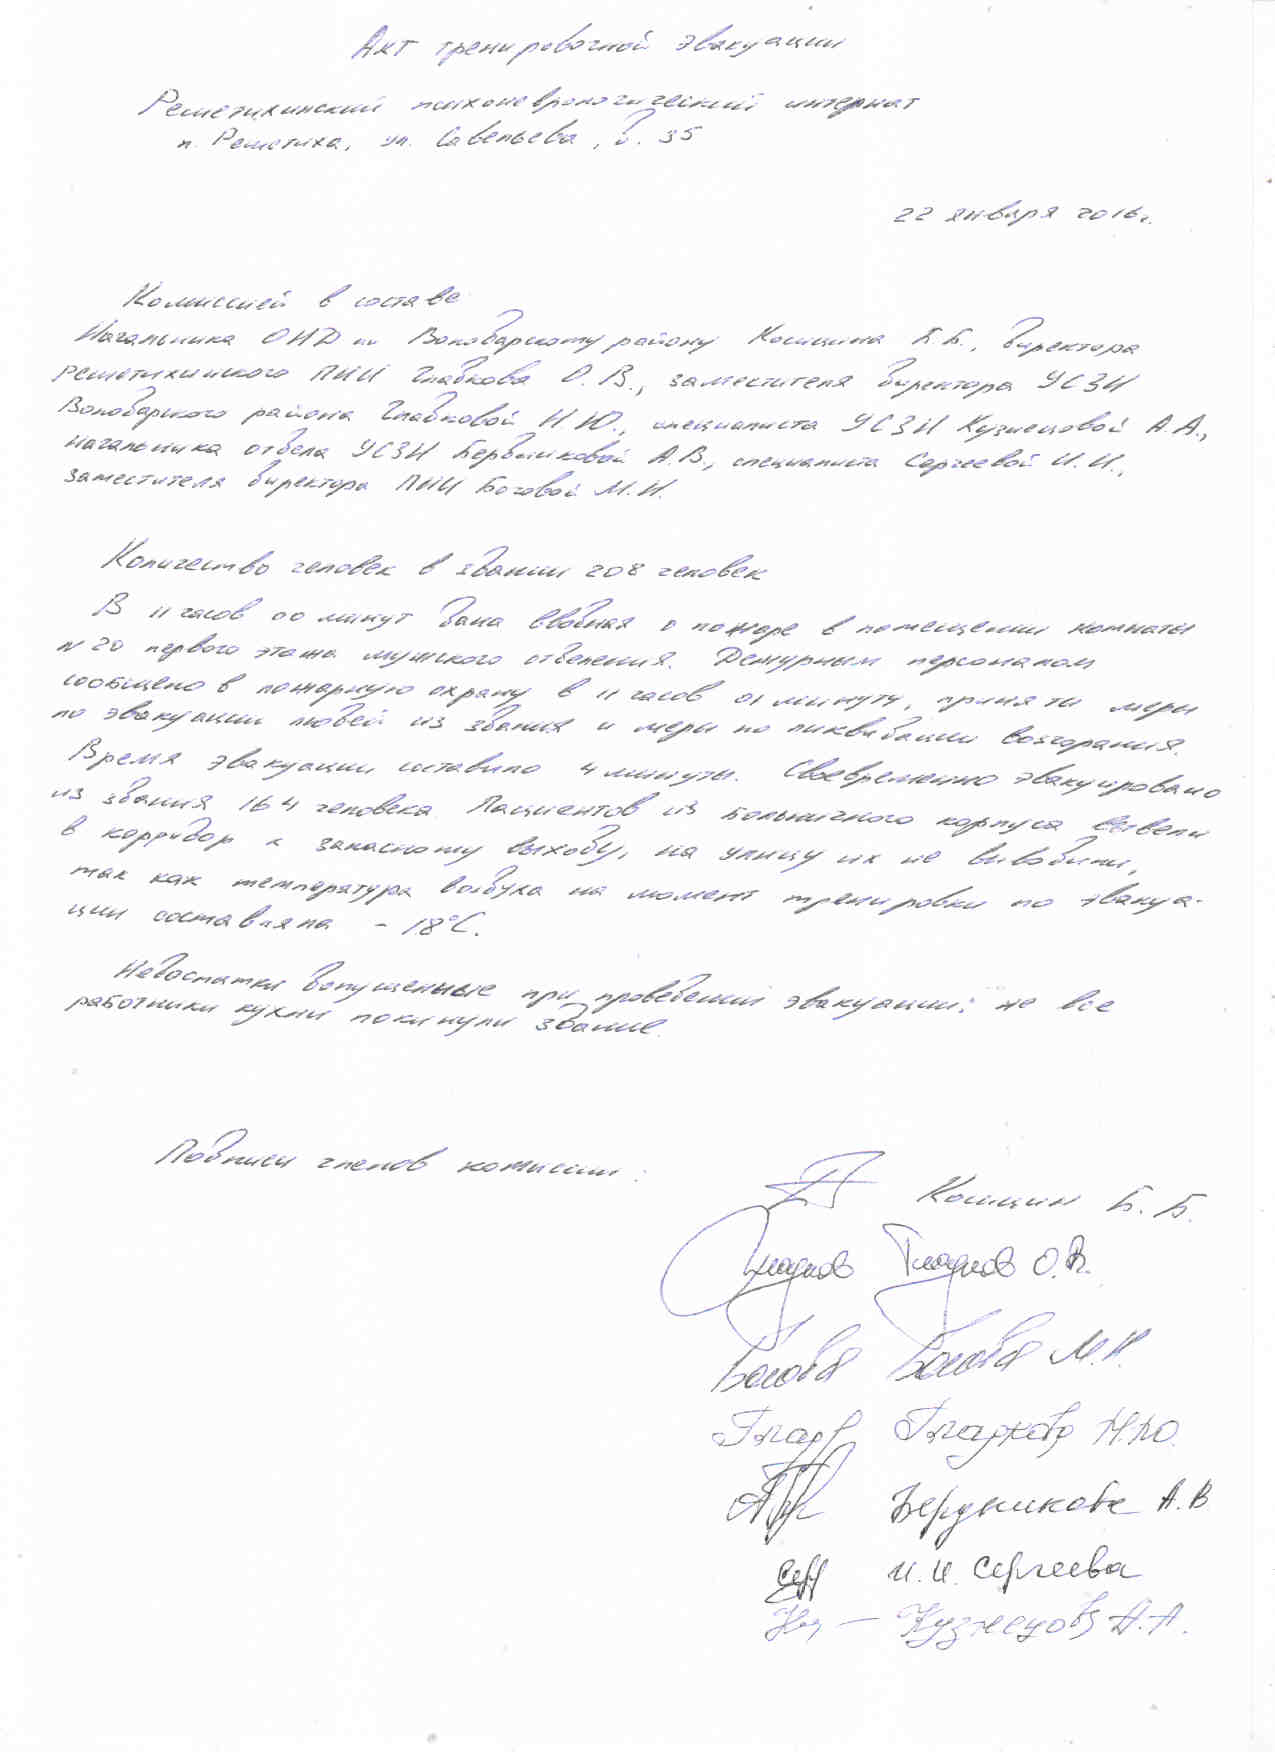 Акт тренировочной эвакуации
Решетихинский психоневрологический интернат
п. Решетиха, ул. Савельева, д. 35
22 января 2016г.
Комиссией в составе
Начальника ОНД по Володарскому району Кошцина Б.Б., директора
Решетихинского ПНИ Гладкова О.В., заместителя директора УСЗН
Володарского района Гладковой Н.Ю., специалиста УСЗН Кузнецовой А.А.,
начальника отдела УСЗН Бердниковой А.В., специалиста Сергеевой И.И.,
заместителя директора ПНИ Боговой М.Н.
Количество человек в здании 208 человек
В 11 часов 00 минут дана вводная о пожаре в помещении комнаты
N 20 первого этажа мужского отделения. Дежурным персоналом
сообщено в пожарную охрану в 11 часов 01 минуту, приняты меры
по эвакуации людей из здания и меры по ликвидации возгорания.
Время эвакуации составило 4 минуты. Своевременно эвакуировано
из здания 164 человека. Пациентов из больничного корпуса вывели
в корридор к запасному выходу, на улицу их не выводили,
так как температура воздуха на момент тренировки по эвакуа-
ции составляла -18°С.
Недостатки допущенные при проведении эвакуации: не все
работники кухни покинули здание.
Подписи членов комиссии:
Кошцин Б.Б.
Гладков Гладков О.В.
Богова Богова М.Н.
Глад Гладкова Н.Ю.
Бердникова А.В
И.И. Сергеева
Куз- Кузнецова А.А.